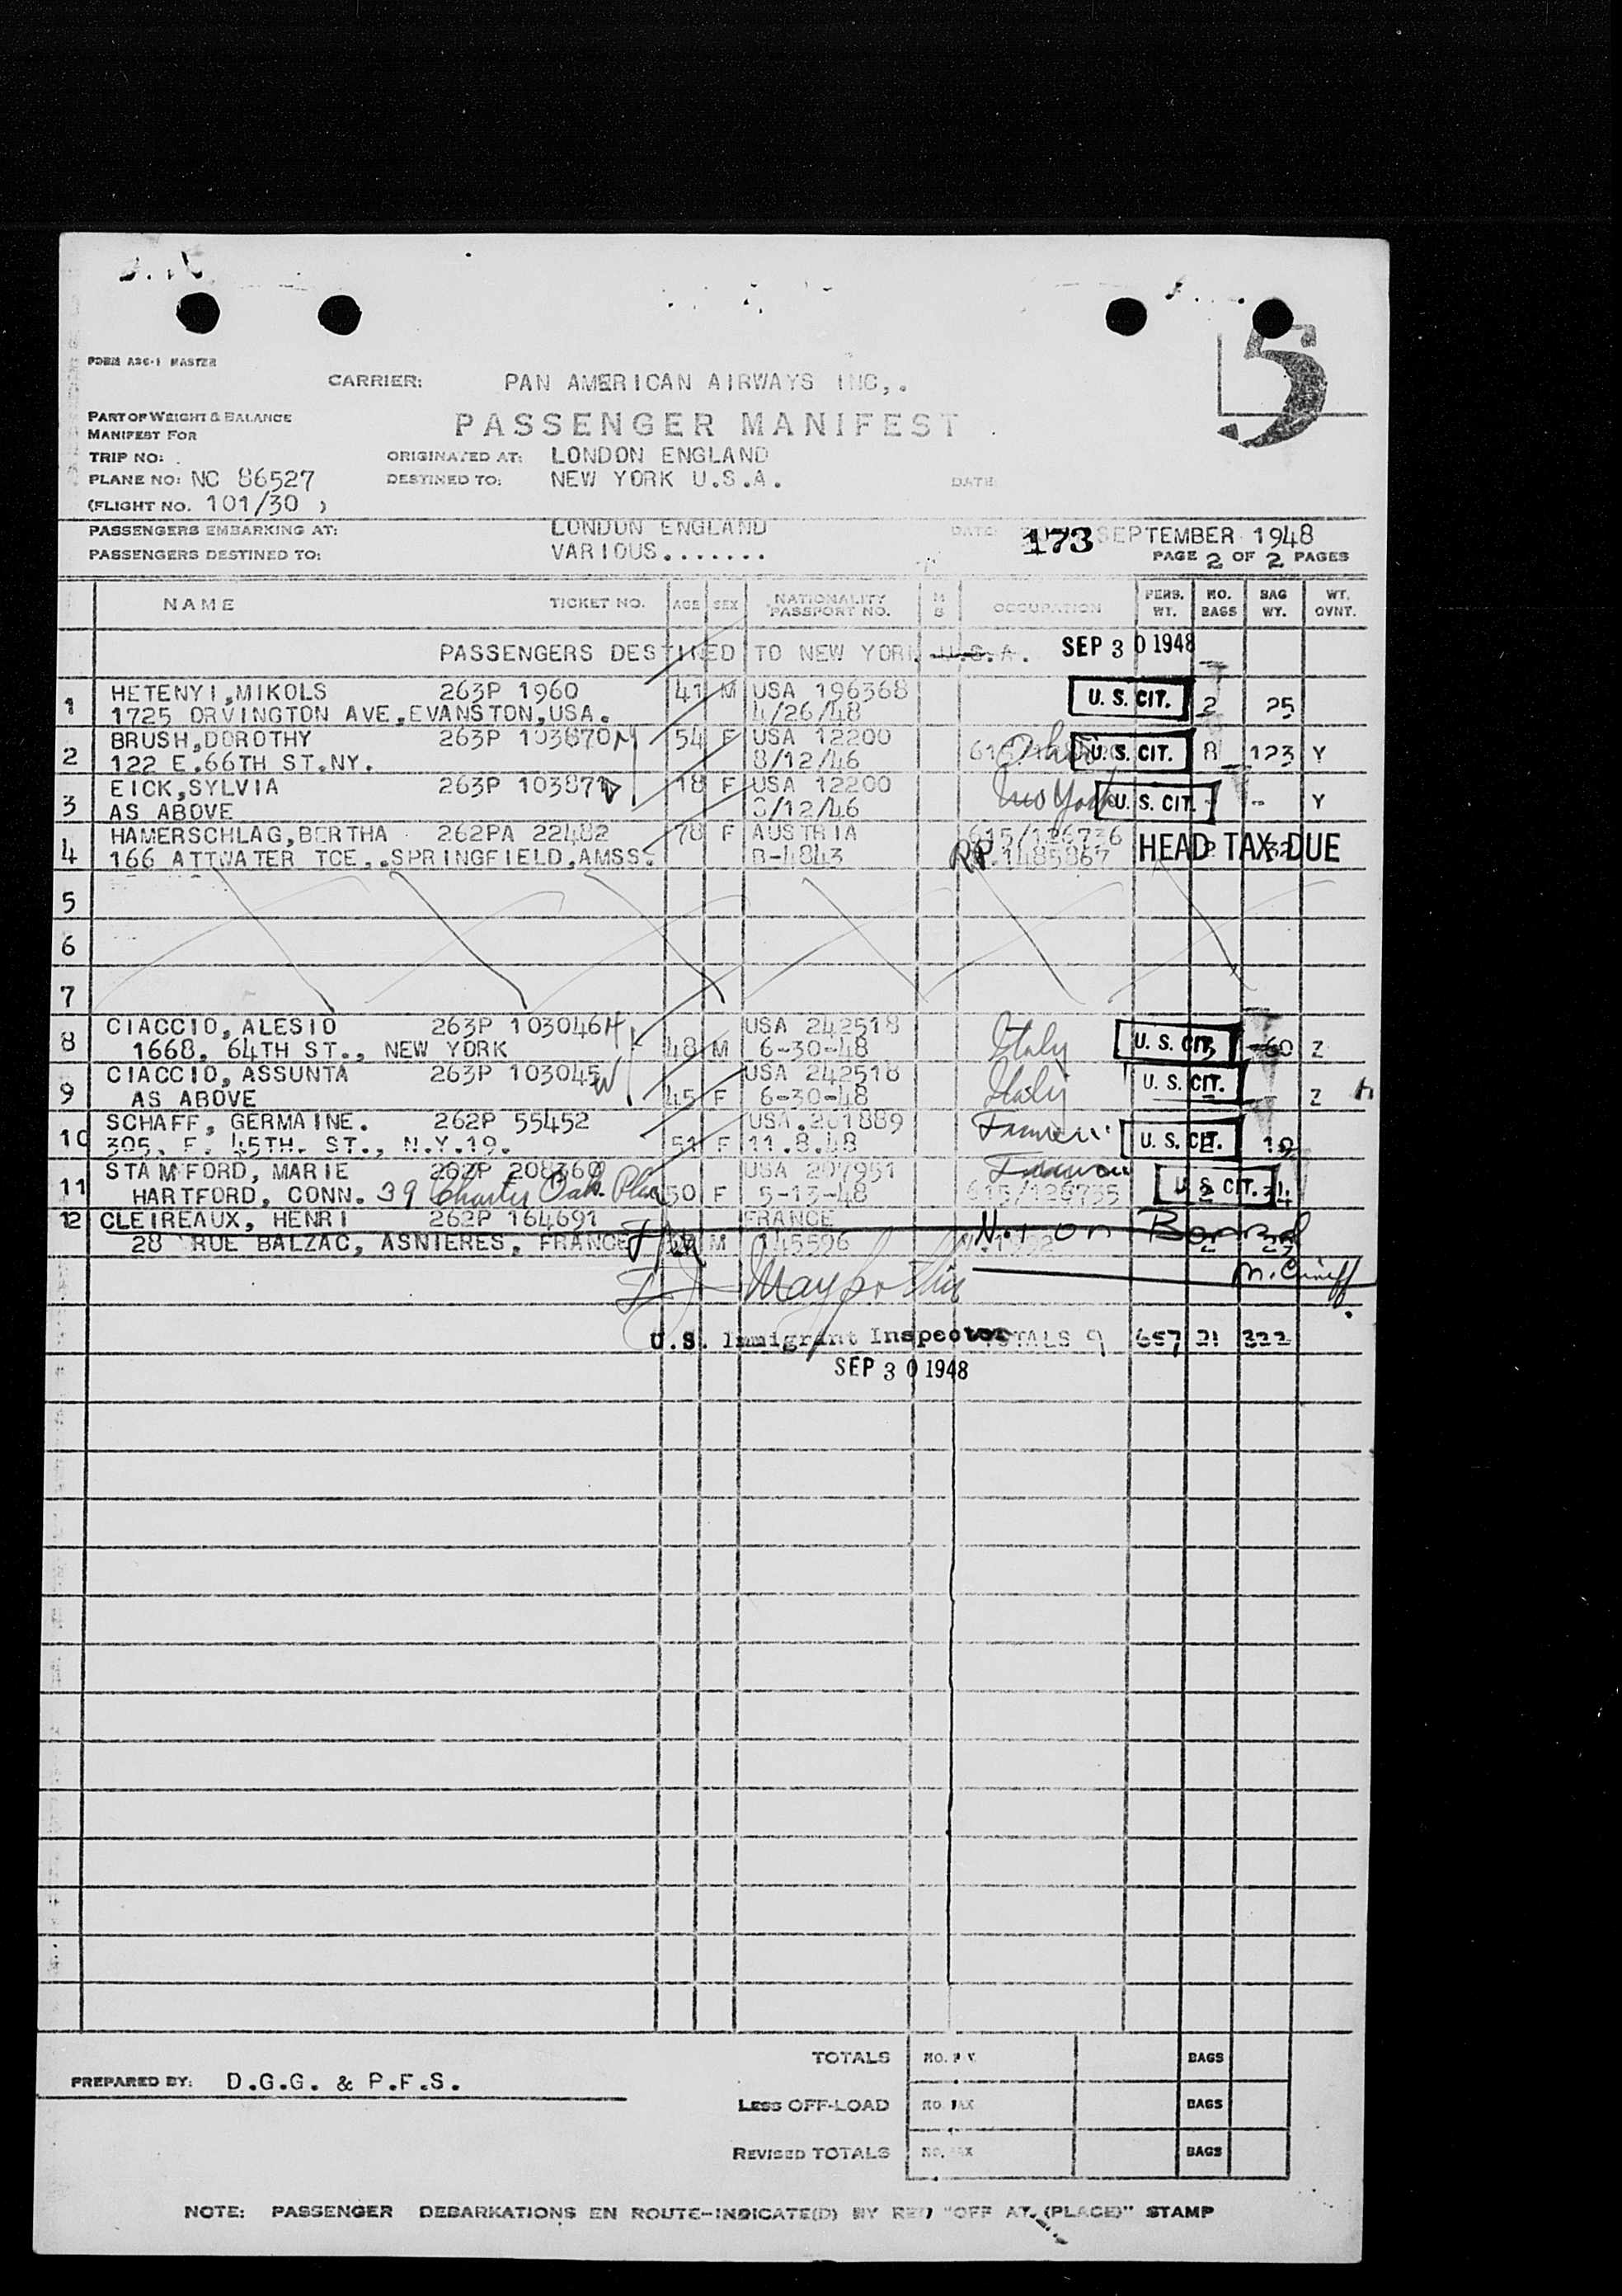 FORM ASC-1 MASTER
CARRIER: PAN AMERICAN AIRWAYS INC,.
5
PART OF WEIGHT & BALANCE
MANIFEST FOR
PASSENGER MANIFEST
TRIP NO: ORIGINATED AT: LONDON ENGLAND
PLANE NO: NC 86527 DESTINED TO: NEW YORK U.S.A. DATE:
(FLIGHT NO. 101/30 )
PASSENGERS EMBARKING AT: LONDON ENGLAND DATE: 173 SEPTEMBER 1948
PASSENGERS DESTINED TO: VARIOUS....... PAGE 2 OF 2 PAGES
NAME TICKET NO. AGE SEX NATIONALITY PASSPORT NO. OCCUPATION PERS. WT. NO. BAGS BAG WT. WT. GVNT.
PASSENGERS DESTINED TO NEW YORK U.S.A. SEP 30 1948
1 HETENYI,MIKOLS 263P 1960 41 M USA 196368 U. S. CIT. 2 25
1725 ORVINGTON AVE,EVANSTON,USA. 4/26/48
2 BRUSH,DOROTHY 263P 103870 54 F USA 12200 Ohio U. S. CIT. 8 123 Y
122 E.66TH ST.NY. 8/12/46
3 EICK,SYLVIA 263P 103871 18 F USA 12200 U. S. CIT. - - Y
AS ABOVE 8/12/46
4 HAMERSCHLAG,BERTHA 262PA 22482 78 F AUSTRIA 615/126736 HEAD TAX DUE
166 ATTWATER TCE,.SPRINGFIELD,AMSS. B-4843 RP.1485867
5
6
7
8 CIACCIO, ALESIO 263P 103046 USA 242518 Italy U. S. CIT. 60 Z
1668, 64TH ST., NEW YORK 48 M 6-30-48
9 CIACCIO, ASSUNTA 263P 103045 USA 242518 Italy U. S. CIT. Z
AS ABOVE 45 F 6-30-48
10 SCHAFF, GERMAINE. 262P 55452 USA.201889 U. S. CIT.
305, E. 45TH. ST., N.Y.19. 51 F 11.8.48
11 STAMFORD, MARIE 262P 208360 USA 207951 U. S. CIT. 34
HARTFORD, CONN. 39 Charter Oak Place 50 F 5-13-48 615/126735
12 CLEIREAUX, HENRI 262P 164691 FRANCE Not on Board
28 RUE BALZAC, ASNIERES, FRANCE M 145596
U.S. Immigrant Inspector TOTALS 9 657 21 322
SEP 30 1948
TOTALS BAGS
PREPARED BY: D.G.G. & P.F.S.
LESS OFF-LOAD NO. PAX BAGS
REVISED TOTALS NO. PAX BAGS
NOTE: PASSENGER DEBARKATIONS EN ROUTE-INDICATE(D) BY RED "OFF AT (PLACE)" STAMP